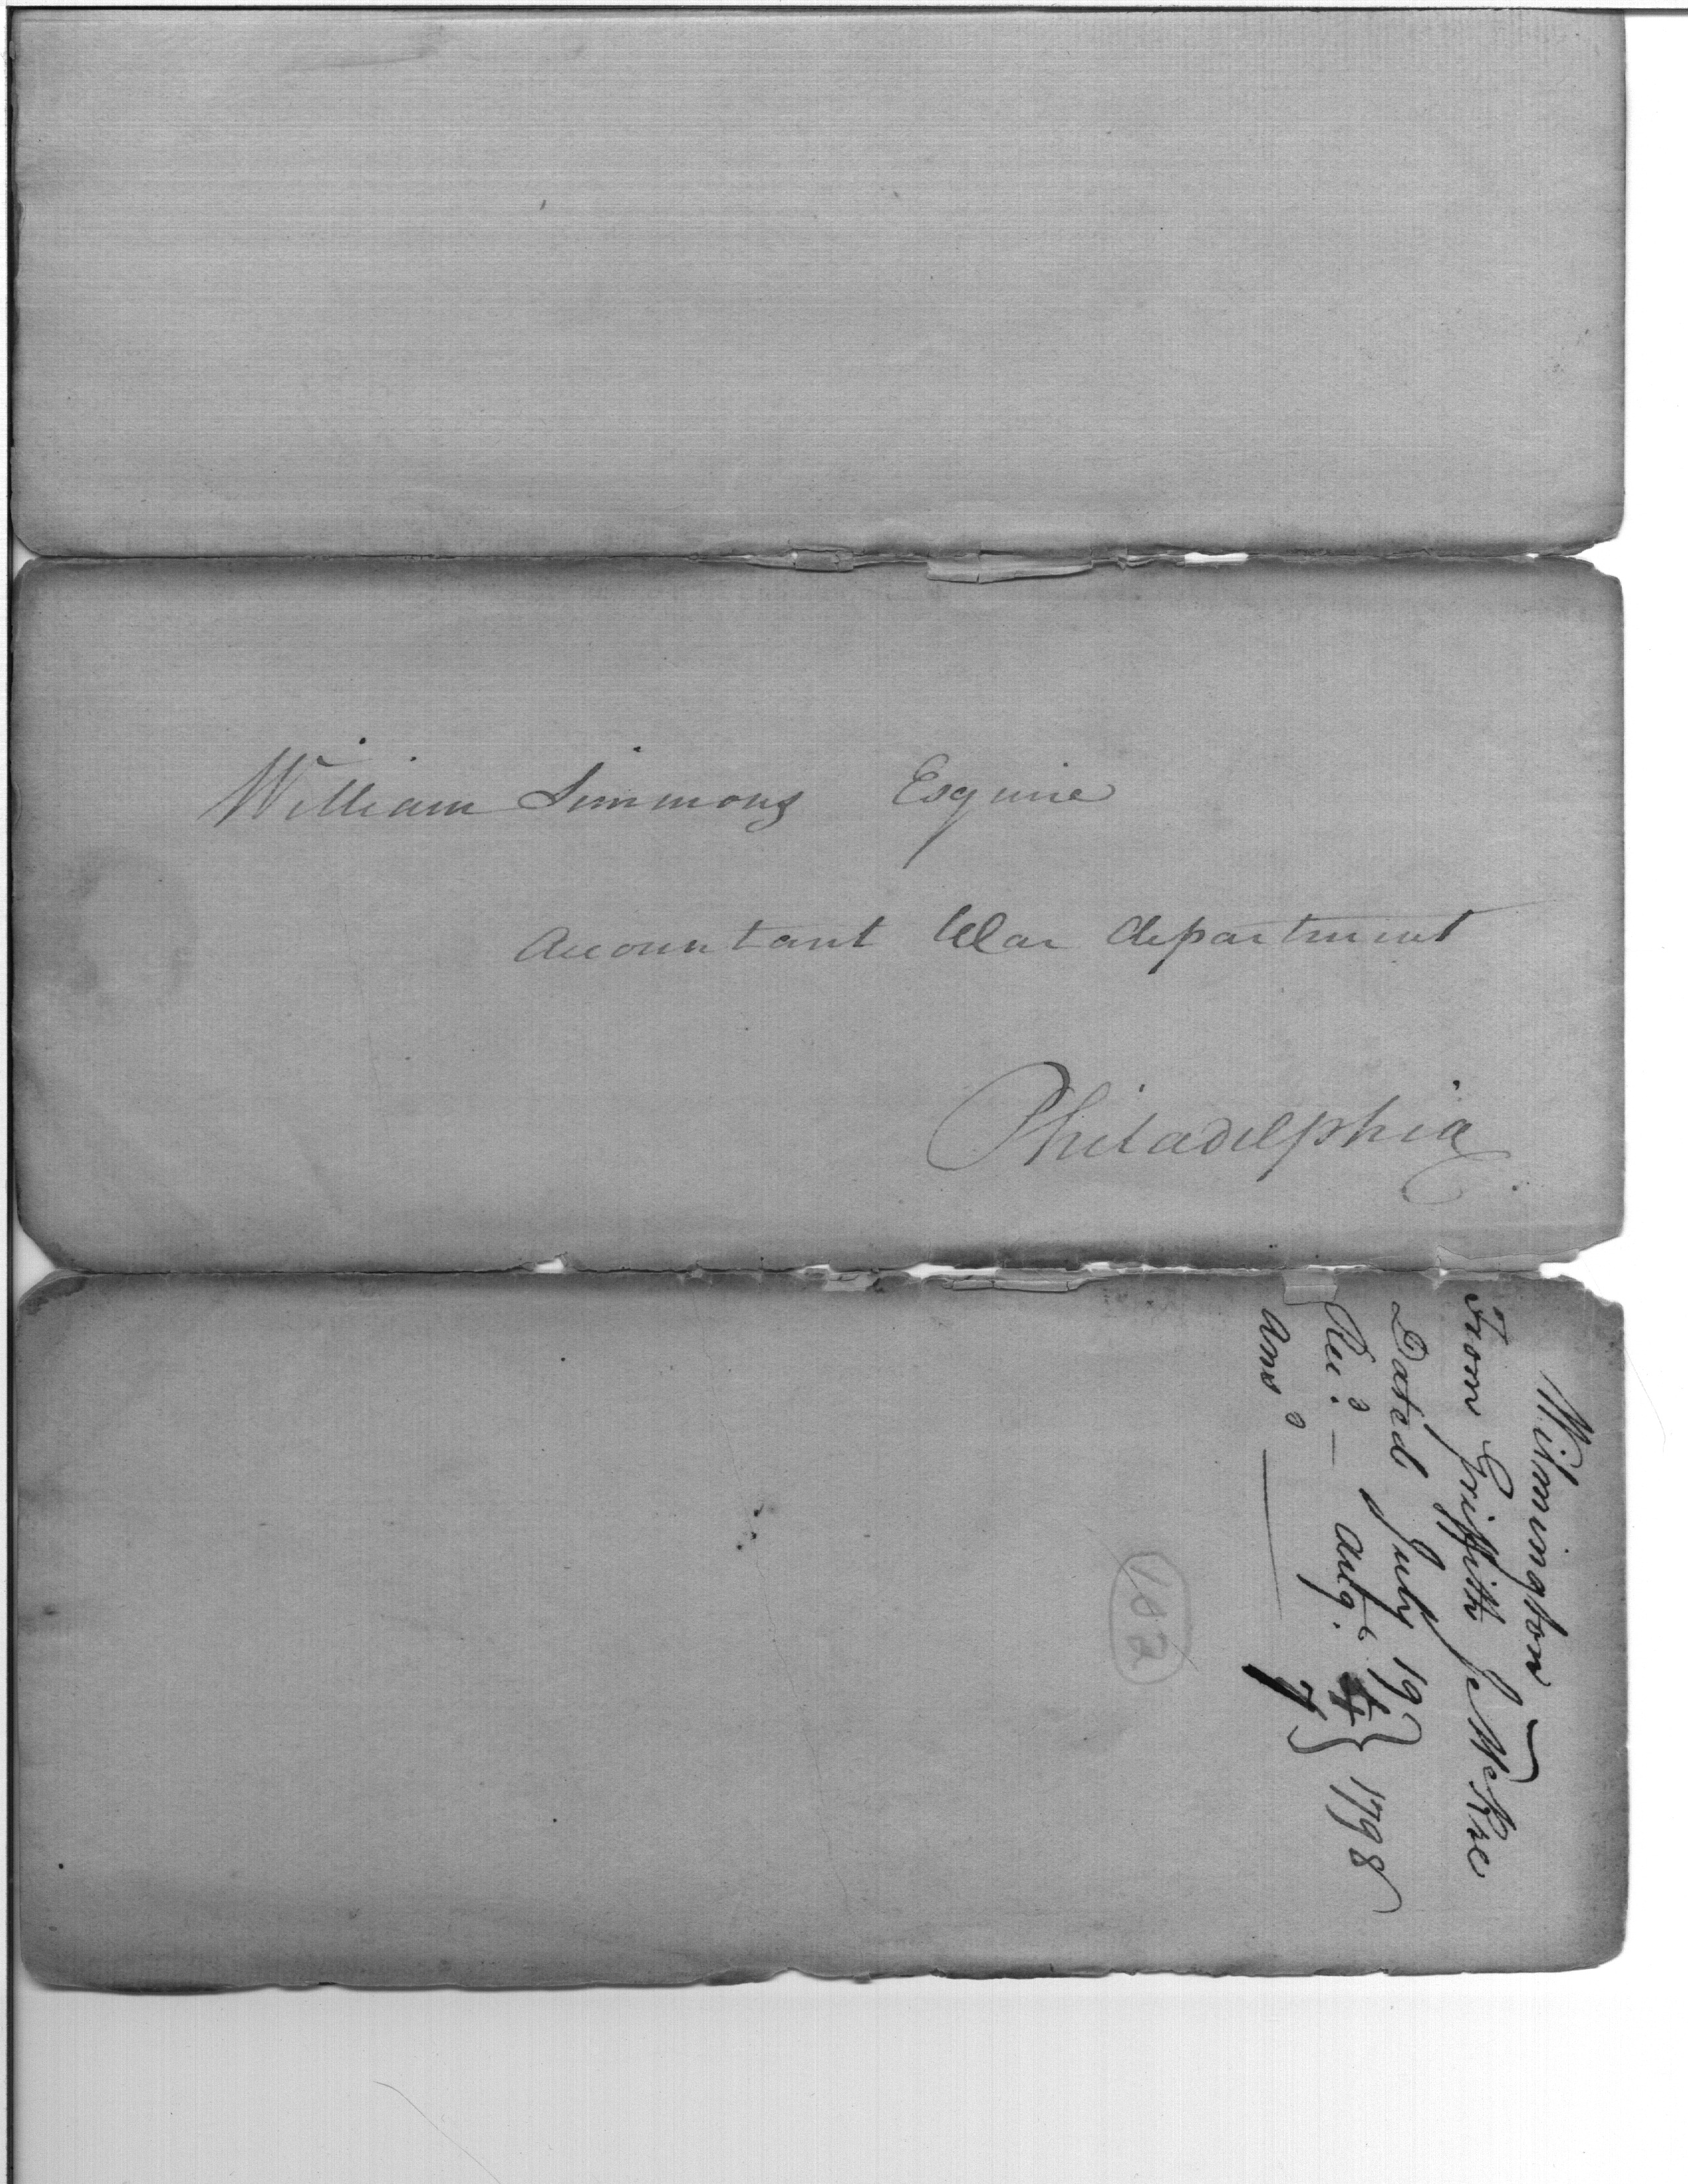 William Simmons Esquire
Accountant War department
Philadelphia
Wilmington
From Griffith J McRee
Dated July 19
Rec.d — Aug.t 4 } 1798
Ans.d — 7
102